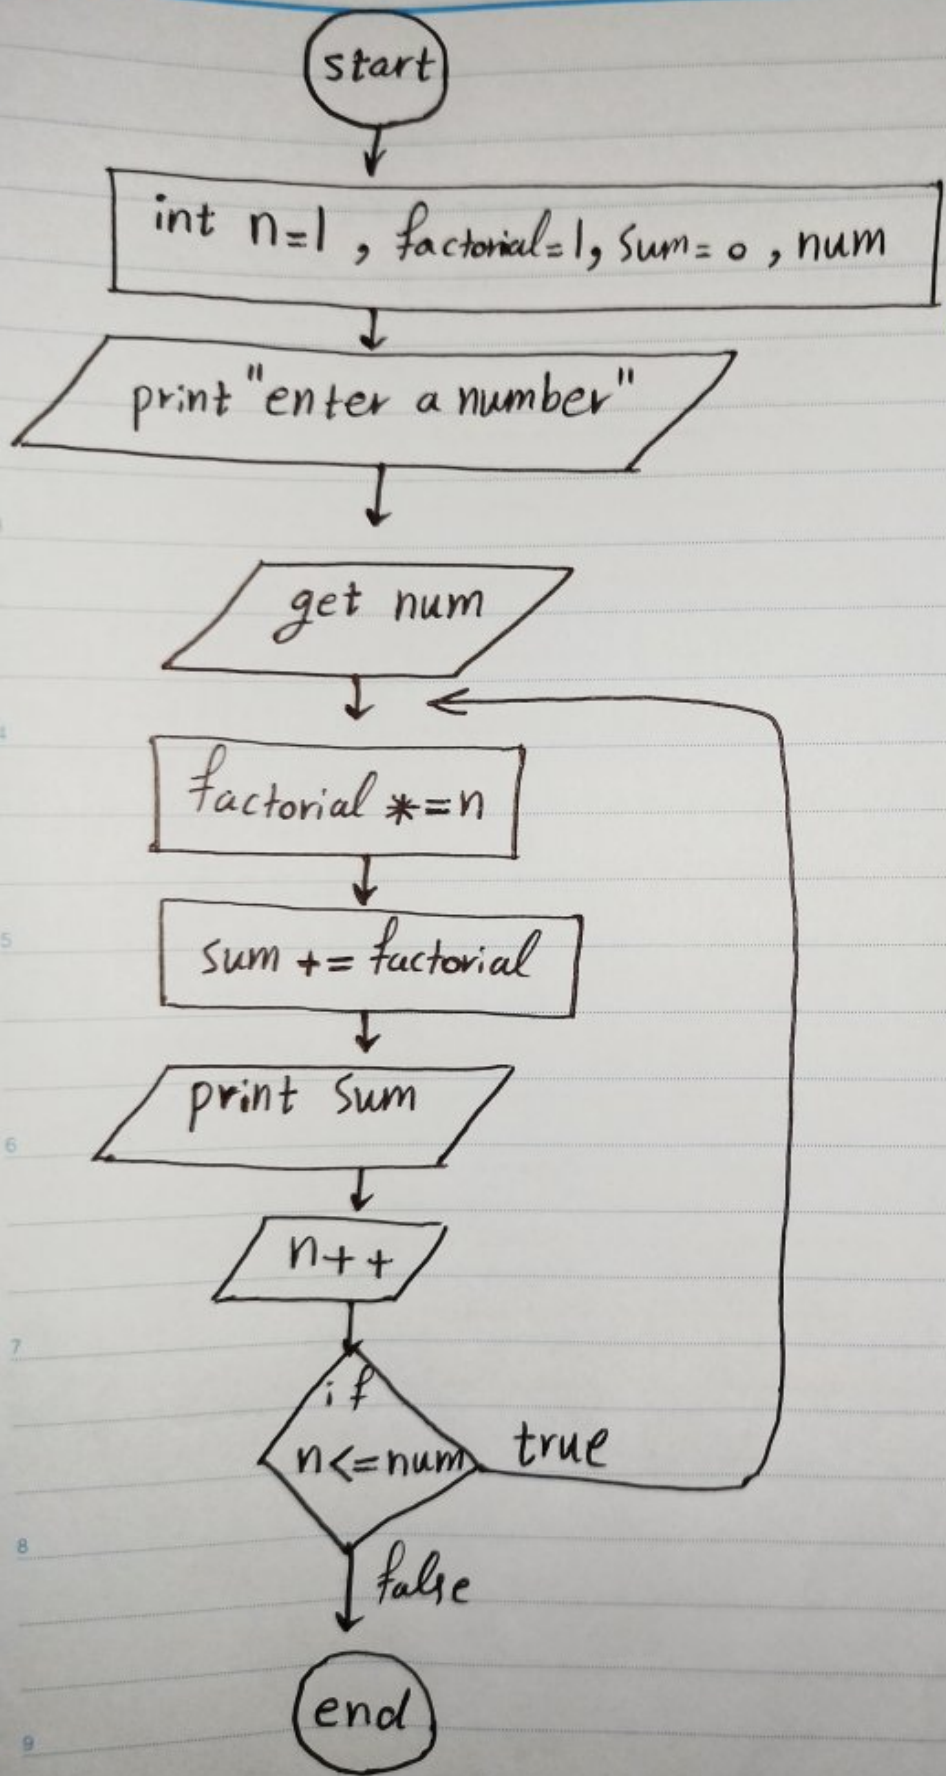 start
int n=1, factorial=1, sum=0, num
print "enter a number"
get num
factorial *=n
sum += factorial
print sum
n++
if
n<=num
true
false
end
4
5
6
7
8
9